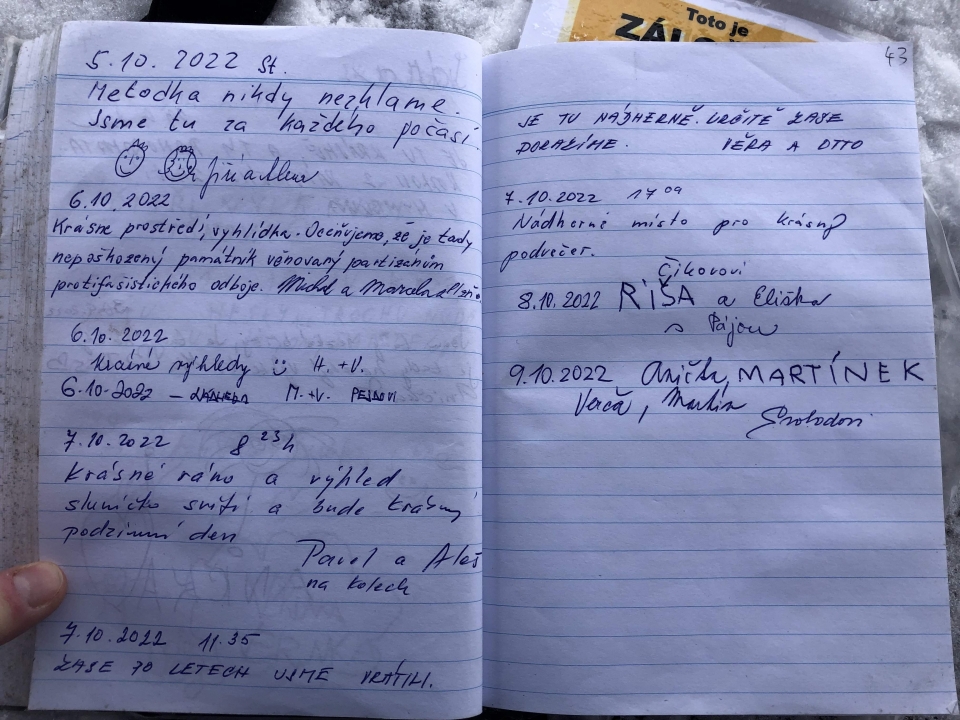 5.10.2022 St.
Metodka nikdy nezklame.
Jsme tu za každého počasí.
Jiří a
6.10.2022
Krásné prostředí, vyhlídka. Oceňujeme, že je tady
nepoškozený památník věnovaný partizánům
protifašistického odboje. Michal a Marcela
6.10.2022
Krásné výhledy H. + V.
6.10.2022 – M. + V.
7.10.2022 8 23 h
Krásné ráno a výhled
sluníčko svítí a bude krásný
podzimní den
Pavel a Aleš
na kolech
7.10.2022 11.35
ZASE PO LETECH JSME VRÁTILI.
Toto je
43
JE TU NÁDHERNĚ. URČITĚ ZASE
DORAZÍME. VĚRA A OTTO
7.10.2022 17 09
Nádherné místo pro krásný
podvečer.
Čikovovi
8.10.2022 RÍŠA a Eliška
s Pájou
9.10.2022 Anička, MARTÍNEK
Verča, Martin
Svobodovi